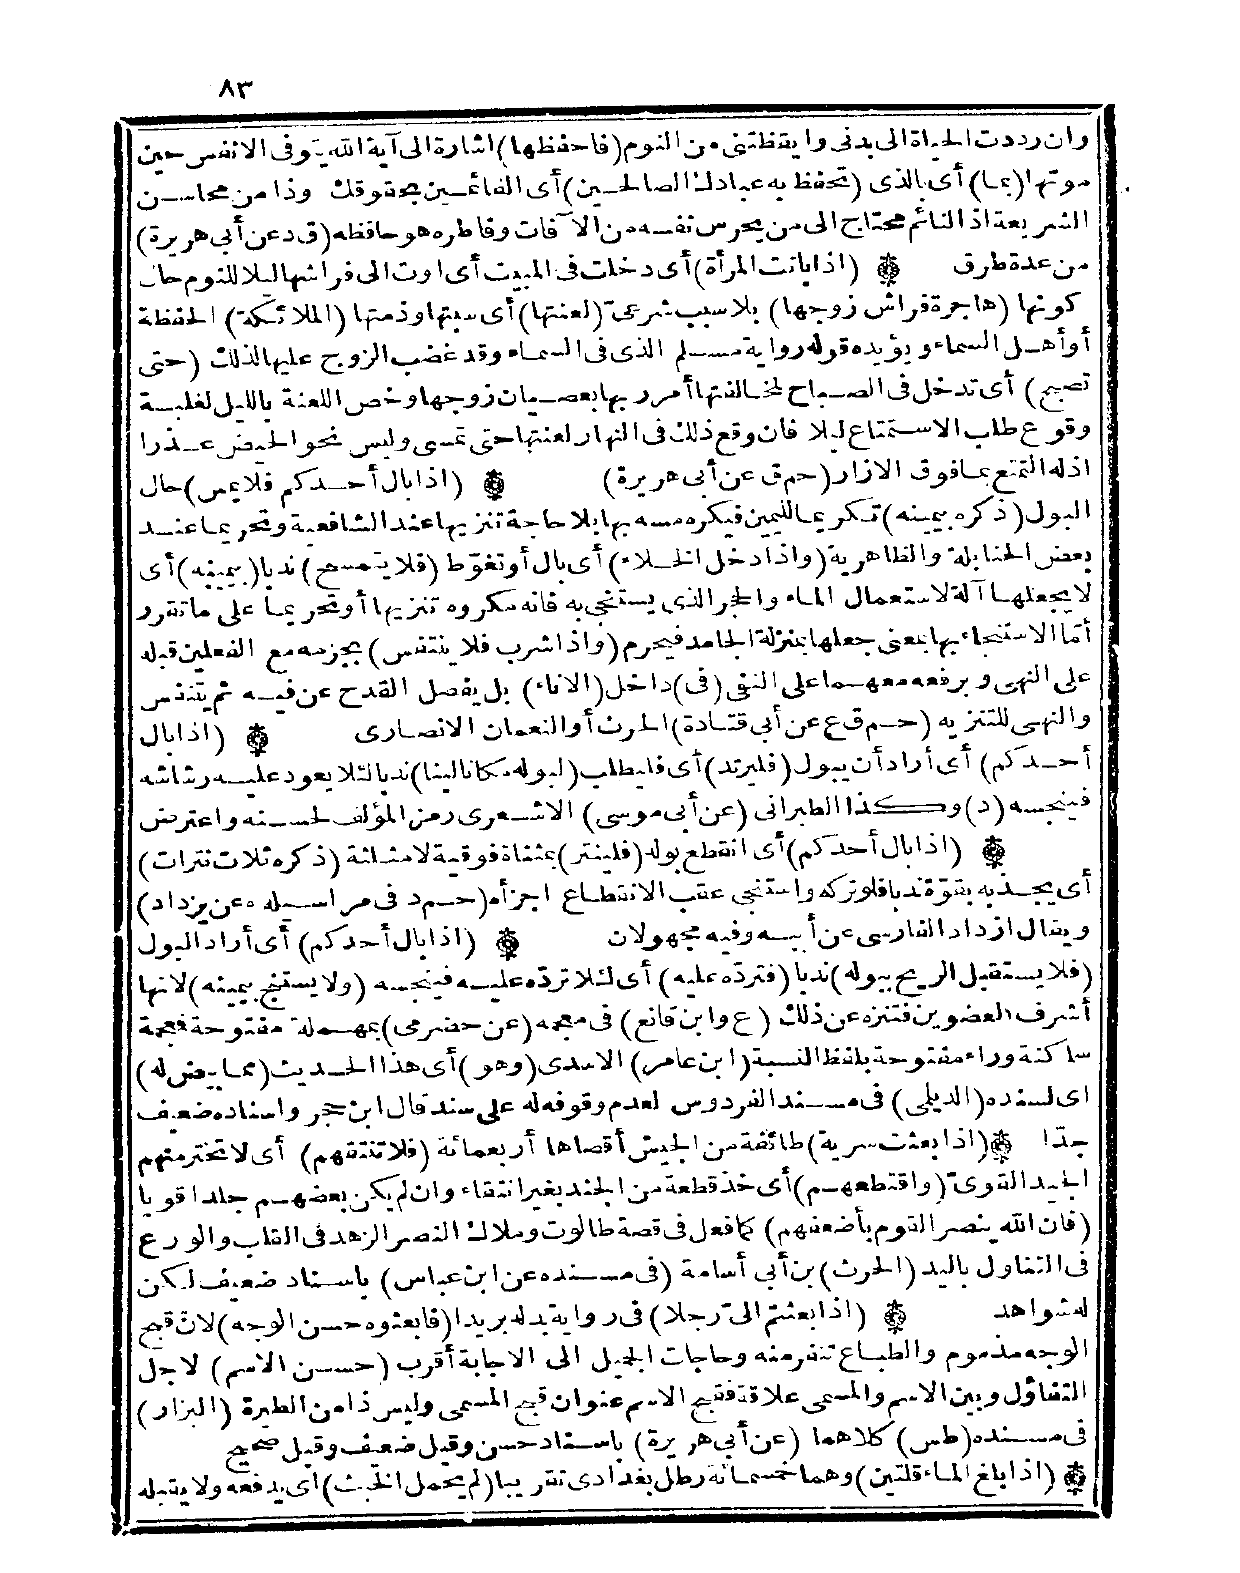 ٨٣
وان رددت الحياة الى بدنى وايقظتنى من النوم (فاحفظها) اشارة الى آية الله يتوفى الانفس حين
موتها (بما) أى بالذى (تحفظ به عبادك الصالحين) أى القائمين بحقوقك وذا من محاسن
الشريعة اذ النائم محتاج الى من يحرس نفسه من الآفات وفاطره هو حافظه (ق د عن أبى هريرة)
من عدة طرق (اذا باتت المرأة) أى دخلت فى المبيت أى اوت الى فراشها ليلا للنوم حال
كونها (هاجرة فراش زوجها) بلا سبب شرعىّ (لعنتها) أى سبتها وذمتها (الملائكة) الحفظة
أو أهل السماء ويؤيده قوله رواية مسلم الذى فى السماء وقد غضب الزوج عليها لذلك (حتى
تصبح) أى تدخل فى الصباح لمخالفتها أمر ربها بعصيان زوجها وخص اللعنة بالليل لغلبة
وقوع طلب الاستمتاع ليلا فان وقع ذلك فى النهار لعنتها حتى تمسى وليس نحو الحيض عذرا
اذ له التمتع بما فوق الازار (حم ق عن أبى هريرة) (اذا بال أحدكم فلا يمس) حال
البول (ذكره بيمينه) تكريما لليمين فيكره مسه بها بلا حاجة تنزيها عند الشافعية وتحريما عند
بعض الحنابلة والظاهرية (واذا دخل الخلاء) أى بال أو تغوّط (فلا يتمسح) ندبا (بيمينه) أى
لا يجعلها آلة لاستعمال الماء والحجر الذى يستنجى به فانه مكروه تنزيها أو تحريما على ما تقرر
أمّا الاستنجاء بها بمعنى جعلها بمنزلة الجامد فيحرم (واذا شرب فلا يتنفس) بجزمه مع الفعلين قبله
على النهى وبرفعه معهما على النفى (فى) داخل (الاناء) بل يفصل القدح عن فيه ثم يتنفس
والنهى للتنزيه (حم ق ع عن أبى قتادة) الحرث أو النعمان الانصارى (اذا بال
أحدكم) أى أراد أن يبول (فليرتد) أى فليطلب (لبوله مكانا لينا) ندبا لئلا يعود عليه رشاشه
فينجسه (د) وكذا الطبرانى (عن أبى موسى) الاشعرى رمز المؤلف لحسنه واعترض
(اذا بال أحدكم) أى انقطع بوله (فلينتر) بمثناة فوقية لا مثلثة (ذكره ثلاث نترات)
أى يجذبه بقوّة ندبا فلو تركه واستنجى عقب الانقطاع اجزأه (حم د فى مراسيله ه عن يزداد)
ويقال ازداد الفارسى عن أبيه وفيه مجهولان (اذا بال أحدكم) أى أراد البول
(فلا يستقبل الريح ببوله) ندبا (فتردّه عليه) أى لئلا تردّه عليه فينجسه (ولا يستنج بيمينه) لانها
أشرف العضوين فتنزه عن ذلك (ع وابن قانع) فى معجمه (عن حضرمى) بمهملة مفتوحة فمعجمة
ساكنة وراء مفتوحة بلفظ النسبة (ابن عامر) الاسدى (وهو) أى هذا الحديث (مما بيض له)
اى لسنده (الديلمى) فى مسند الفردوس لعدم وقوفه له على سند قال ابن حجر واسناده ضعيف
جدّا (اذا بعثت سرية) طائفة من الجيش أقصاها أربعمائة (فلا تنتقهم) أى لا تختر منهم
الجيد القوىّ (واقتطعهم) أى خذ قطعة من الجند بغير انتقاء وان لم يكن بعضهم جلدا قويا
(فان الله ينصر القوم بأضعفهم) كما فعل فى قصة طالوت وملاك النصر الزهد فى القلب والورع
فى التناول باليد (الحرث) بن أبى أسامة (فى مسنده عن ابن عباس) باسناد ضعيف لكن
له شواهد (اذا بعثتم الىّ رجلا) فى رواية بدله بريدا (فابعثوه حسن الوجه) لانّ قبح
الوجه مذموم والطباع تنفر منه وحاجات الجميل الى الاجابة أقرب (حسن الاسم) لاجل
التفاؤل وبين الاسم والمسمى علاقة فقبح الاسم عنوان قبح المسمى وليس ذا من الطيرة (البزار)
فى مسنده (طس) كلاهما (عن أبى هريرة) باسناد حسن وقيل ضعيف وقيل صحيح
(اذا بلغ الماء قلتين) وهما خمسمائة رطل بغدادى تقريبا (لم يحمل الخبث) أى يدفعه ولا يقبله